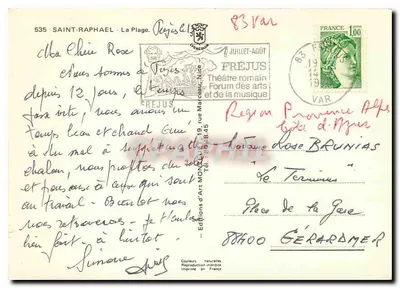 535 - SAINT-RAPHAEL - La Plage. Fréjus
83 Var
Ma Chère Rose
Nous sommes à Fréjus
depuis 12 jours, le temps
passe vite, nous avons un
temps beau et chaud
à du mal à supporter la
chaleur, nous profitons du soleil
et pensons à ceux qui sont
au travail - Bientôt nous
nous retrouverons - Je t'embrasse
bien fort - à bientôt
Simone
JUILLET-AOÛT
FRÉJUS
Théâtre romain
Forum des arts
et de la musique
FRÉJUS
83 FRÉJUS
VAR
FRANCE
1,00
Region Provence Alpes
Côte d'Azur
Madame Rose BRUNIAS
"Le Terminus"
Place de la Gare
88400 GÉRARDMER
Editions d'Art
Couleurs naturelles
Reproduction interdite
Imprimé en France